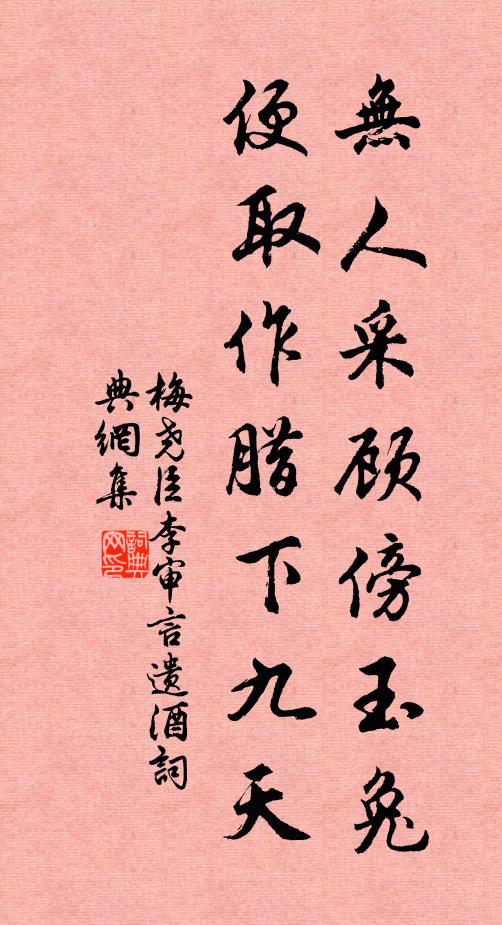 無人采顾傍玉兔
便取作腊下九天
梅尧臣李审言遗酒詞
典網集
詞典
网印